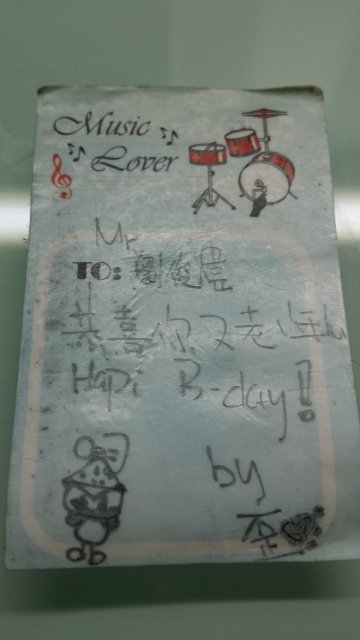 Music
Lover
Mr.
TO: 劉俊偉
恭喜你又老1年lu
HaPi B-day!!
by
歪